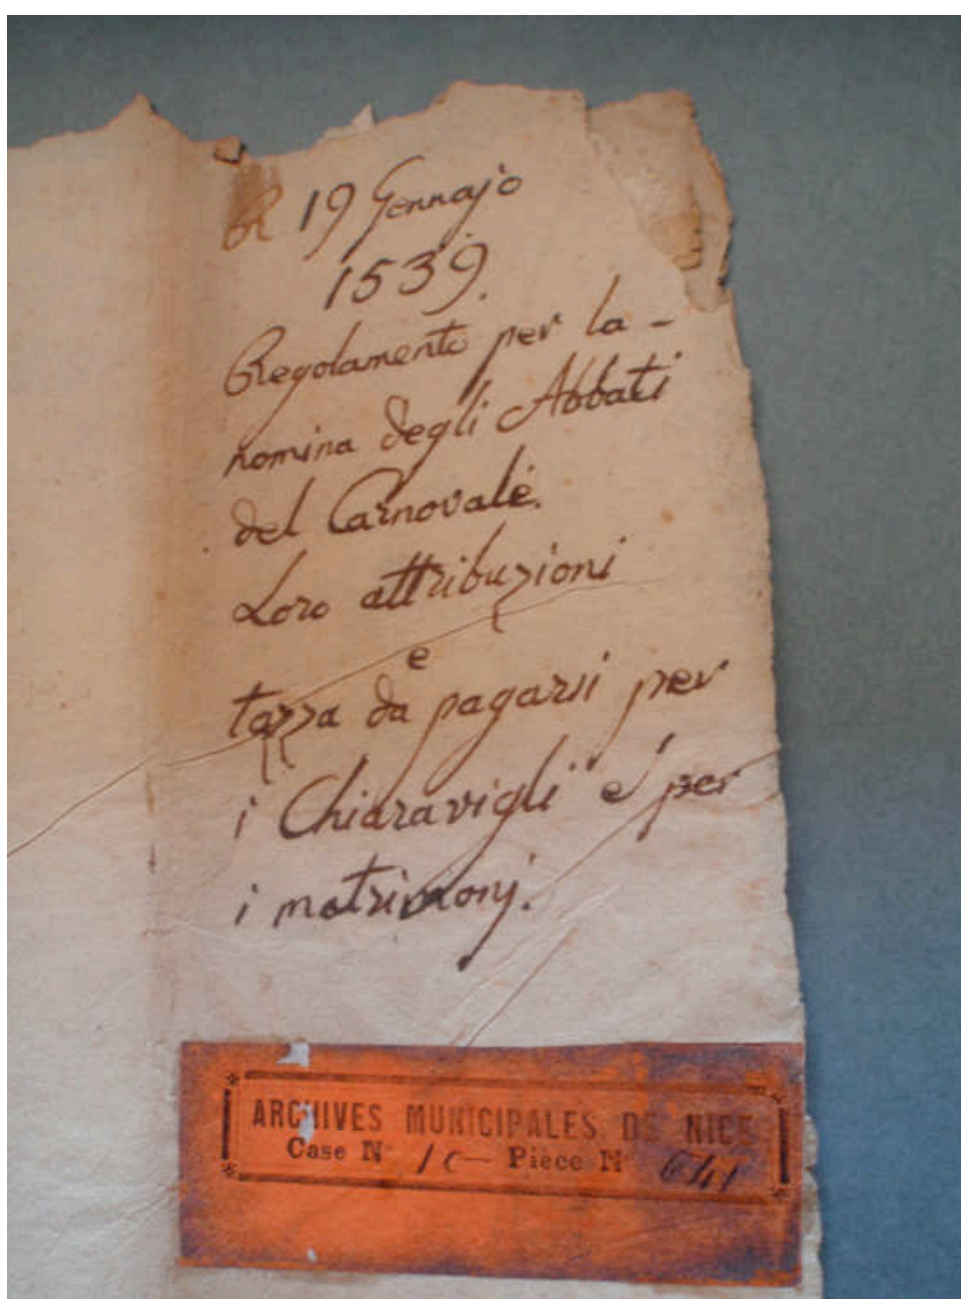 19 Gennajo
1539.
Regolamento per la -
nomina degli Abbati
del Carnovale.
Loro attribuzioni
e
tazza da pagarsi per
i Chiaravigli e per
i matrimonj.
ARCHIVES MUNICIPALES DE NICE
Case N° Pièce N°